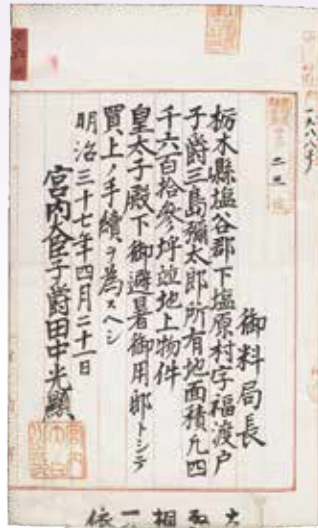 一九八八年
二三
御料局長
栃木縣塩谷郡下塩原村字福渡戸
子爵三島彌太郎所有地面積凡四
千六百拾參坪竝地上物件
皇太子殿下御避暑御用邸トシテ
買上ノ手續ヲ為スヘシ
明治三十七年四月二十一日
宮内大臣子爵田中光顯